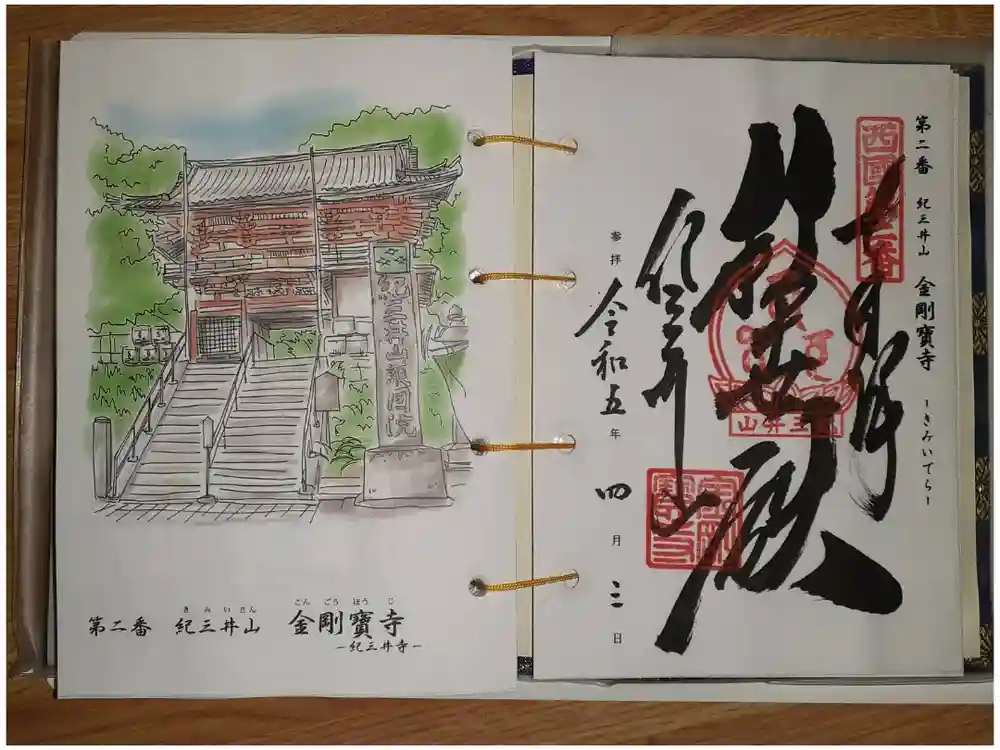 紀三井山護国院
きみいさん こんごうほうじ
第二番 紀三井山 金剛寶寺
ー紀三井寺ー
第二番 紀三井山 金剛寶寺 ーきみいでらー
西國第二番
奉拝
救世殿
紀三井山
金剛寶寺
参拝 令和五年 四月 三日